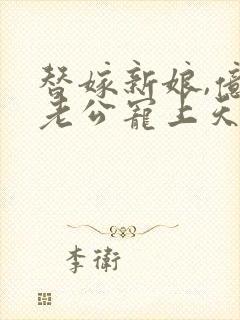 替嫁新娘,億
老公寵上天
李衛